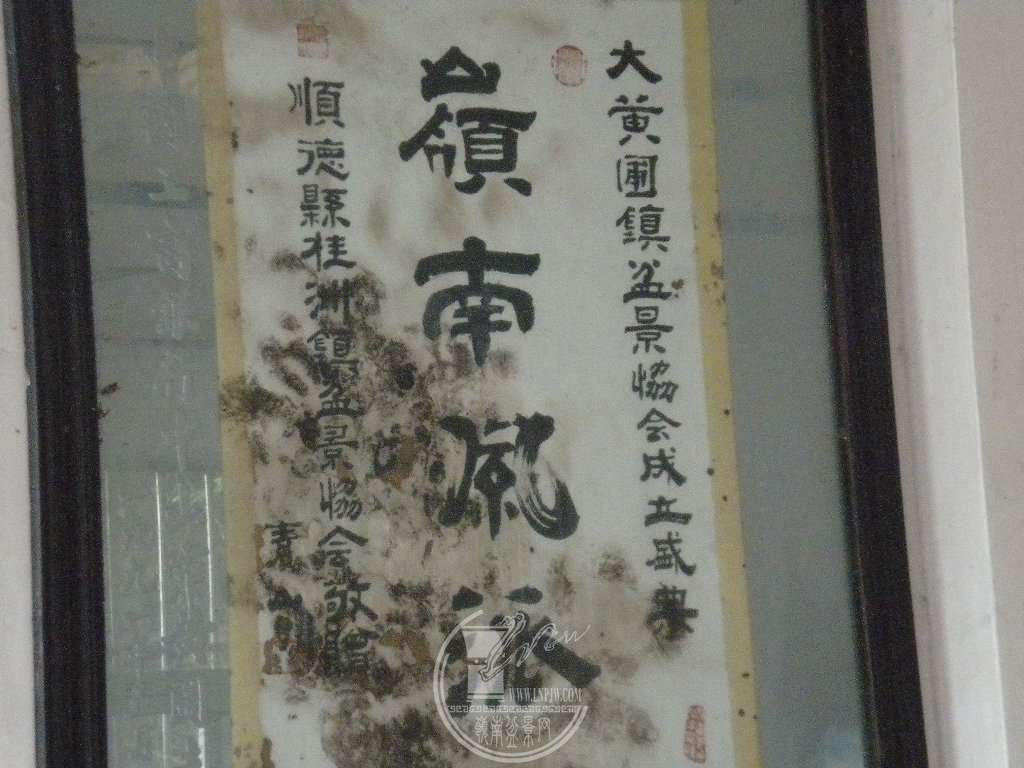 大黄圃鎮盆景恊会成立盛典
嶺南風
順德縣桂洲鎮盆景恊会敬贈
WWW.LNPJW.COM
嶺南盆景网